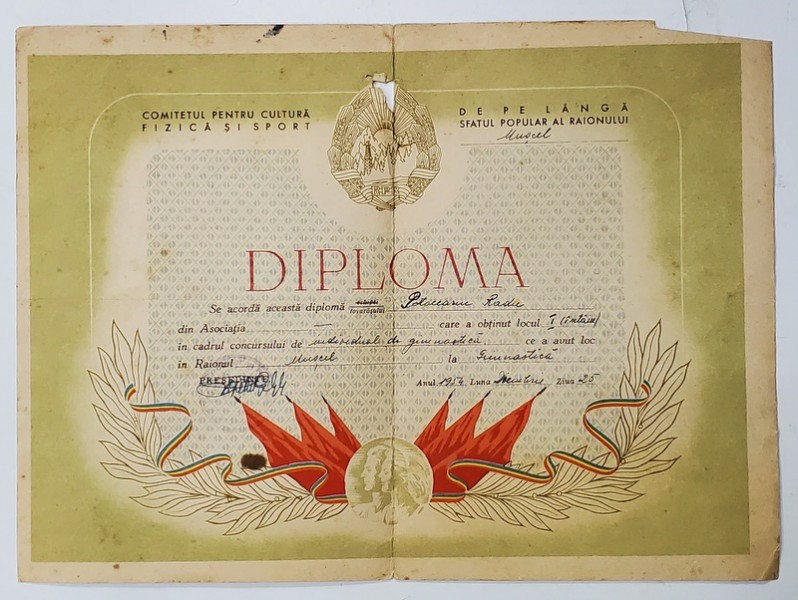 COMITETUL PENTRU CULTURĂ
FIZICĂ ȘI SPORT
DE PE LÂNGĂ
SFATUL POPULAR AL RAIONULUI
Mușcel
R.P.R.
DIPLOMA
Se acordă această diplomă echipei
tovarășului Radu
din Asociația — care a obținut locul I (întâiu)
în cadrul concursului de individual de gimnastică ce a avut loc
în Raionul Mușcel la Gimnastică
PREȘEDINTE
Anul 1954 Luna Ziua 25